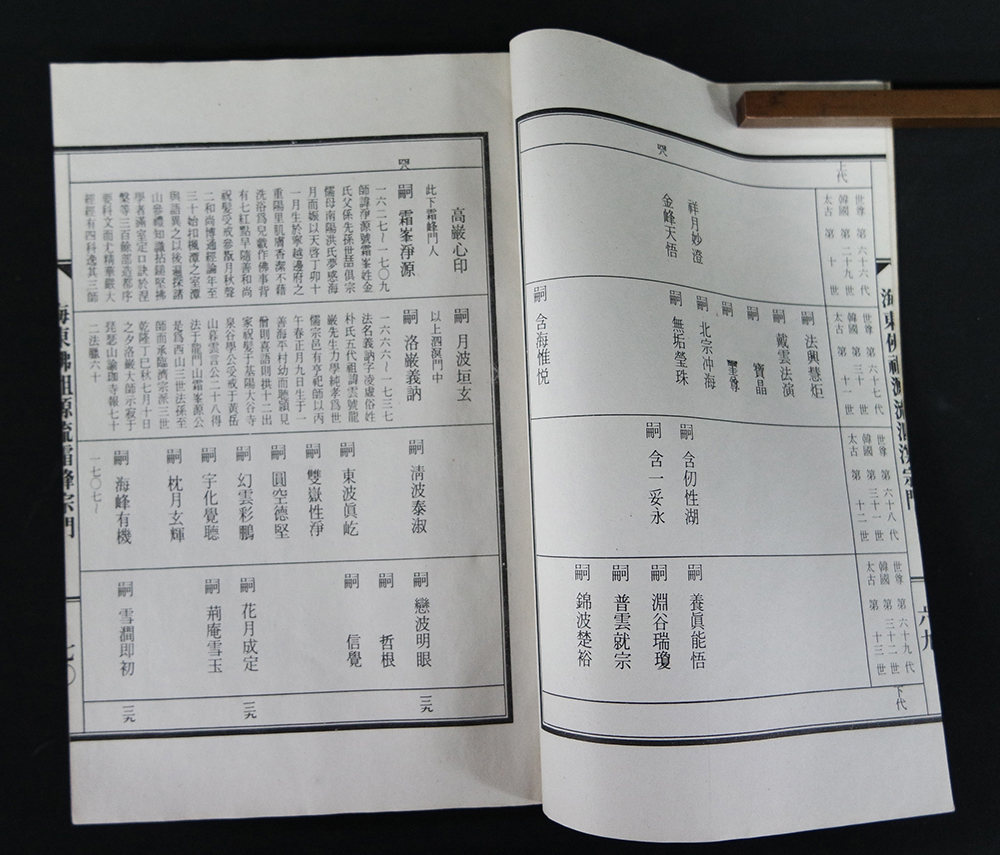 上代
世尊 第 六十六 代
韓國 第 二十九 世
太古 第 十 世
祥月妙澄
金峰天悟
世尊 第 六十七 代
韓國 第 三十 世
太古 第 十一 世
嗣 法興慧炬
嗣 戴雲法演
嗣 寶晶
嗣 北宗沖海
嗣 無垢瑩珠
嗣 含海惟悦
世尊 第 六十八 代
韓國 第 三十一 世
太古 第 十二 世
嗣 含仞性湖
嗣 含一妥永
世尊 第 六十九 代
韓國 第 三十二 世
太古 第 十三 世
嗣 養眞能悟
嗣 淵谷瑞瓊
嗣 普雲就宗
嗣 錦波楚裕
下代
六九
高巖心印
此下霜峰門人
嗣 霜峯淨源
一六二七~一七〇九
師諱淨源號霜峯姓金
氏父係先孫世話俱宗
儒母南陽洪氏夢感海
月而娠以天啓丁卯十
一月生於寧越邊府之
重陽里肌膚香潔不藉
洗浴爲兒戱作佛事背
有七紅點早隨善和尚
祝髮受戒參敢月秋聲
二和尚博通經論年至
三十始扣楓潭之室潭
與語異之以後遍探諸
山參禮知識拈鎚堅拂
學者滿室定口訣於涅
槃等三百餘部造都序
要科文而尤精華嚴大
經經有四科逸其三師
嗣 月波垣玄
以上泗溟門中
嗣 洛巖義訥
一六六六~一七三七
法名義訥字凌虛俗姓
朴氏五代祖諱雲號龍
巖先生力學純孝爲世
儒宗邑有亨祀師以丙
午春正月九日生于一
善海平村幼而聰頴見
僧則喜語則拱十二出
家祝髮于基陽大谷寺
泉谷學公受戒于黃岳
山暮雲言公二十八得
法于龍門山霜峯源公
是爲西山三世法孫至
師而承臨濟宗派三世
乾隆丁巳秋七月十日
之夕洛巖大師示寂于
琵瑟山瑜珈寺報七十
二法臘六十
嗣 淸波泰淑
嗣 東波眞屹
嗣 雙嶽性淨
嗣 圓空德堅
嗣 幻雲彩鵬
嗣 宇化覺聽
嗣 枕月玄輝
嗣 海峰有機
一七〇七~
嗣 戀波明眼
嗣 哲根
嗣 信覺
嗣 花月成定
嗣 荊庵雪玉
嗣 雪澗即初
海東佛祖源流霜峰宗門
七〇